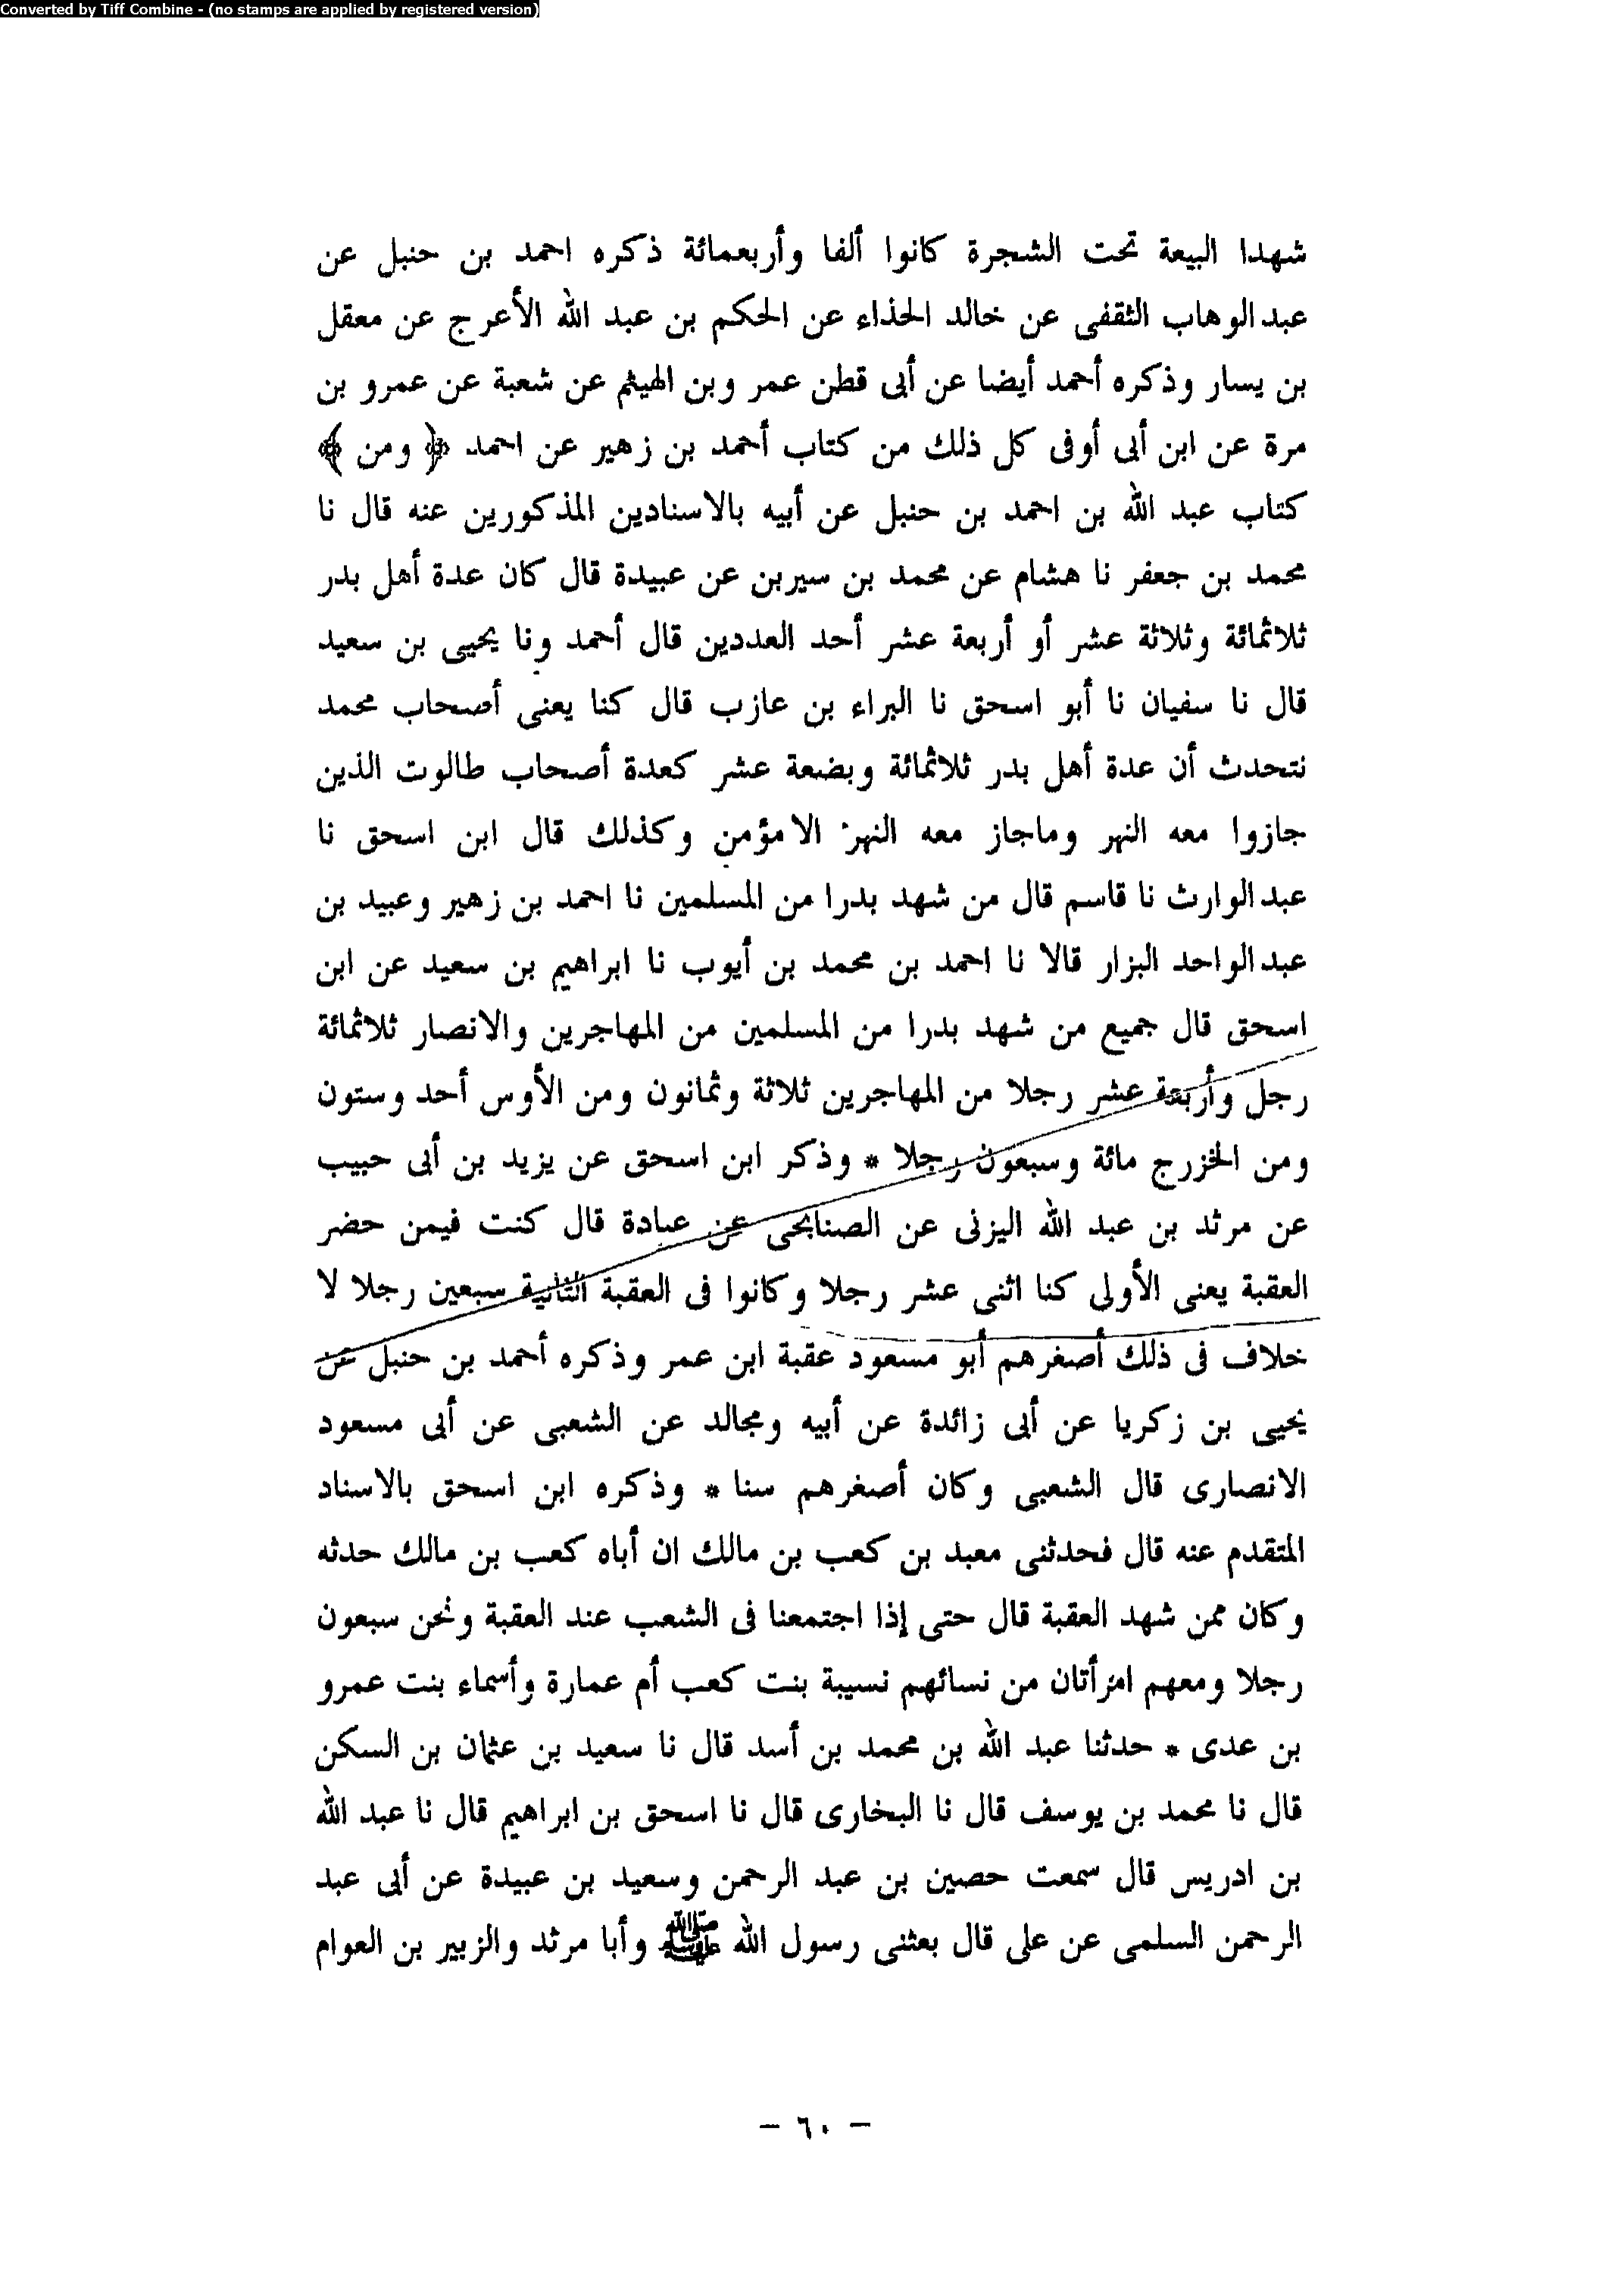 Converted by Tiff Combine - (no stamps are applied by registered version)
شهدا البيعة تحت الشجرة كانوا ألفا وأربعمائة ذكره احمد بن حنبل عن
عبد الوهاب الثقفى عن خالد الحذاء عن الحكم بن عبد الله الأعرج عن معقل
بن يسار وذكره أحمد أيضا عن أبى قطن عمر وبن الهيثم عن شعبة عن عمرو بن
مرة عن ابن أبى أوفى كل ذلك من كتاب أحمد بن زهير عن احمد ﴿ ومن ﴾
كتاب عبد الله بن احمد بن حنبل عن أبيه بالاسنادين المذكورين عنه قال نا
محمد بن جعفر نا هشام عن محمد بن سيربن عن عبيدة قال كان عدة أهل بدر
ثلاثمائة وثلاثة عشر أو أربعة عشر أحد العددين قال أحمد ونا يحيى بن سعيد
قال نا سفيان نا أبو اسحق نا البراء بن عازب قال كنا يعنى أصحاب محمد
نتحدث أن عدة أهل بدر ثلاثمائة وبضعة عشر كعدة أصحاب طالوت الذين
جازوا معه النهر وماجاز معه النهر الا مؤمن وكذلك قال ابن اسحق نا
عبد الوارث نا قاسم قال من شهد بدرا من المسلمين نا احمد بن زهير وعبيد بن
عبد الواحد البزار قالا نا احمد بن محمد بن أيوب نا ابراهيم بن سعيد عن ابن
اسحق قال جميع من شهد بدرا من المسلمين من المهاجرين والانصار ثلاثمائة
رجل وأربعة عشر رجلا من المهاجرين ثلاثة وثمانون ومن الأوس أحد وستون
ومن الخزرج مائة وسبعون رجلا * وذكر ابن اسحق عن يزيد بن أبى حبيب
عن مرثد بن عبد الله اليزنى عن الصنابحى عن عبادة قال كنت فيمن حضر
العقبة يعنى الأولى كنا اثنى عشر رجلا وكانوا فى العقبة الثانية سبعين رجلا لا
خلاف فى ذلك أصغرهم أبو مسعود عقبة ابن عمر وذكره أحمد بن حنبل عن
يحيى بن زكريا عن أبى زائدة عن أبيه ومجالد عن الشعبى عن أبى مسعود
الانصارى قال الشعبى وكان أصغرهم سنا * وذكره ابن اسحق بالاسناد
المتقدم عنه قال فحدثنى معبد بن كعب بن مالك ان أباه كعب بن مالك حدثه
وكان ممن شهد العقبة قال حتى إذا اجتمعنا فى الشعب عند العقبة ونحن سبعون
رجلا ومعهم امرأتان من نسائهم نسيبة بنت كعب أم عمارة وأسماء بنت عمرو
بن عدى * حدثنا عبد الله بن محمد بن أسد قال نا سعيد بن عثمان بن السكن
قال نا محمد بن يوسف قال نا البخارى قال نا اسحق بن ابراهيم قال نا عبد الله
بن ادريس قال سمعت حصين بن عبد الرحمن وسعيد بن عبيدة عن أبى عبد
الرحمن السلمى عن على قال بعثنى رسول الله ﷺ وأبا مرثد والزبير بن العوام
— ٦٠ —